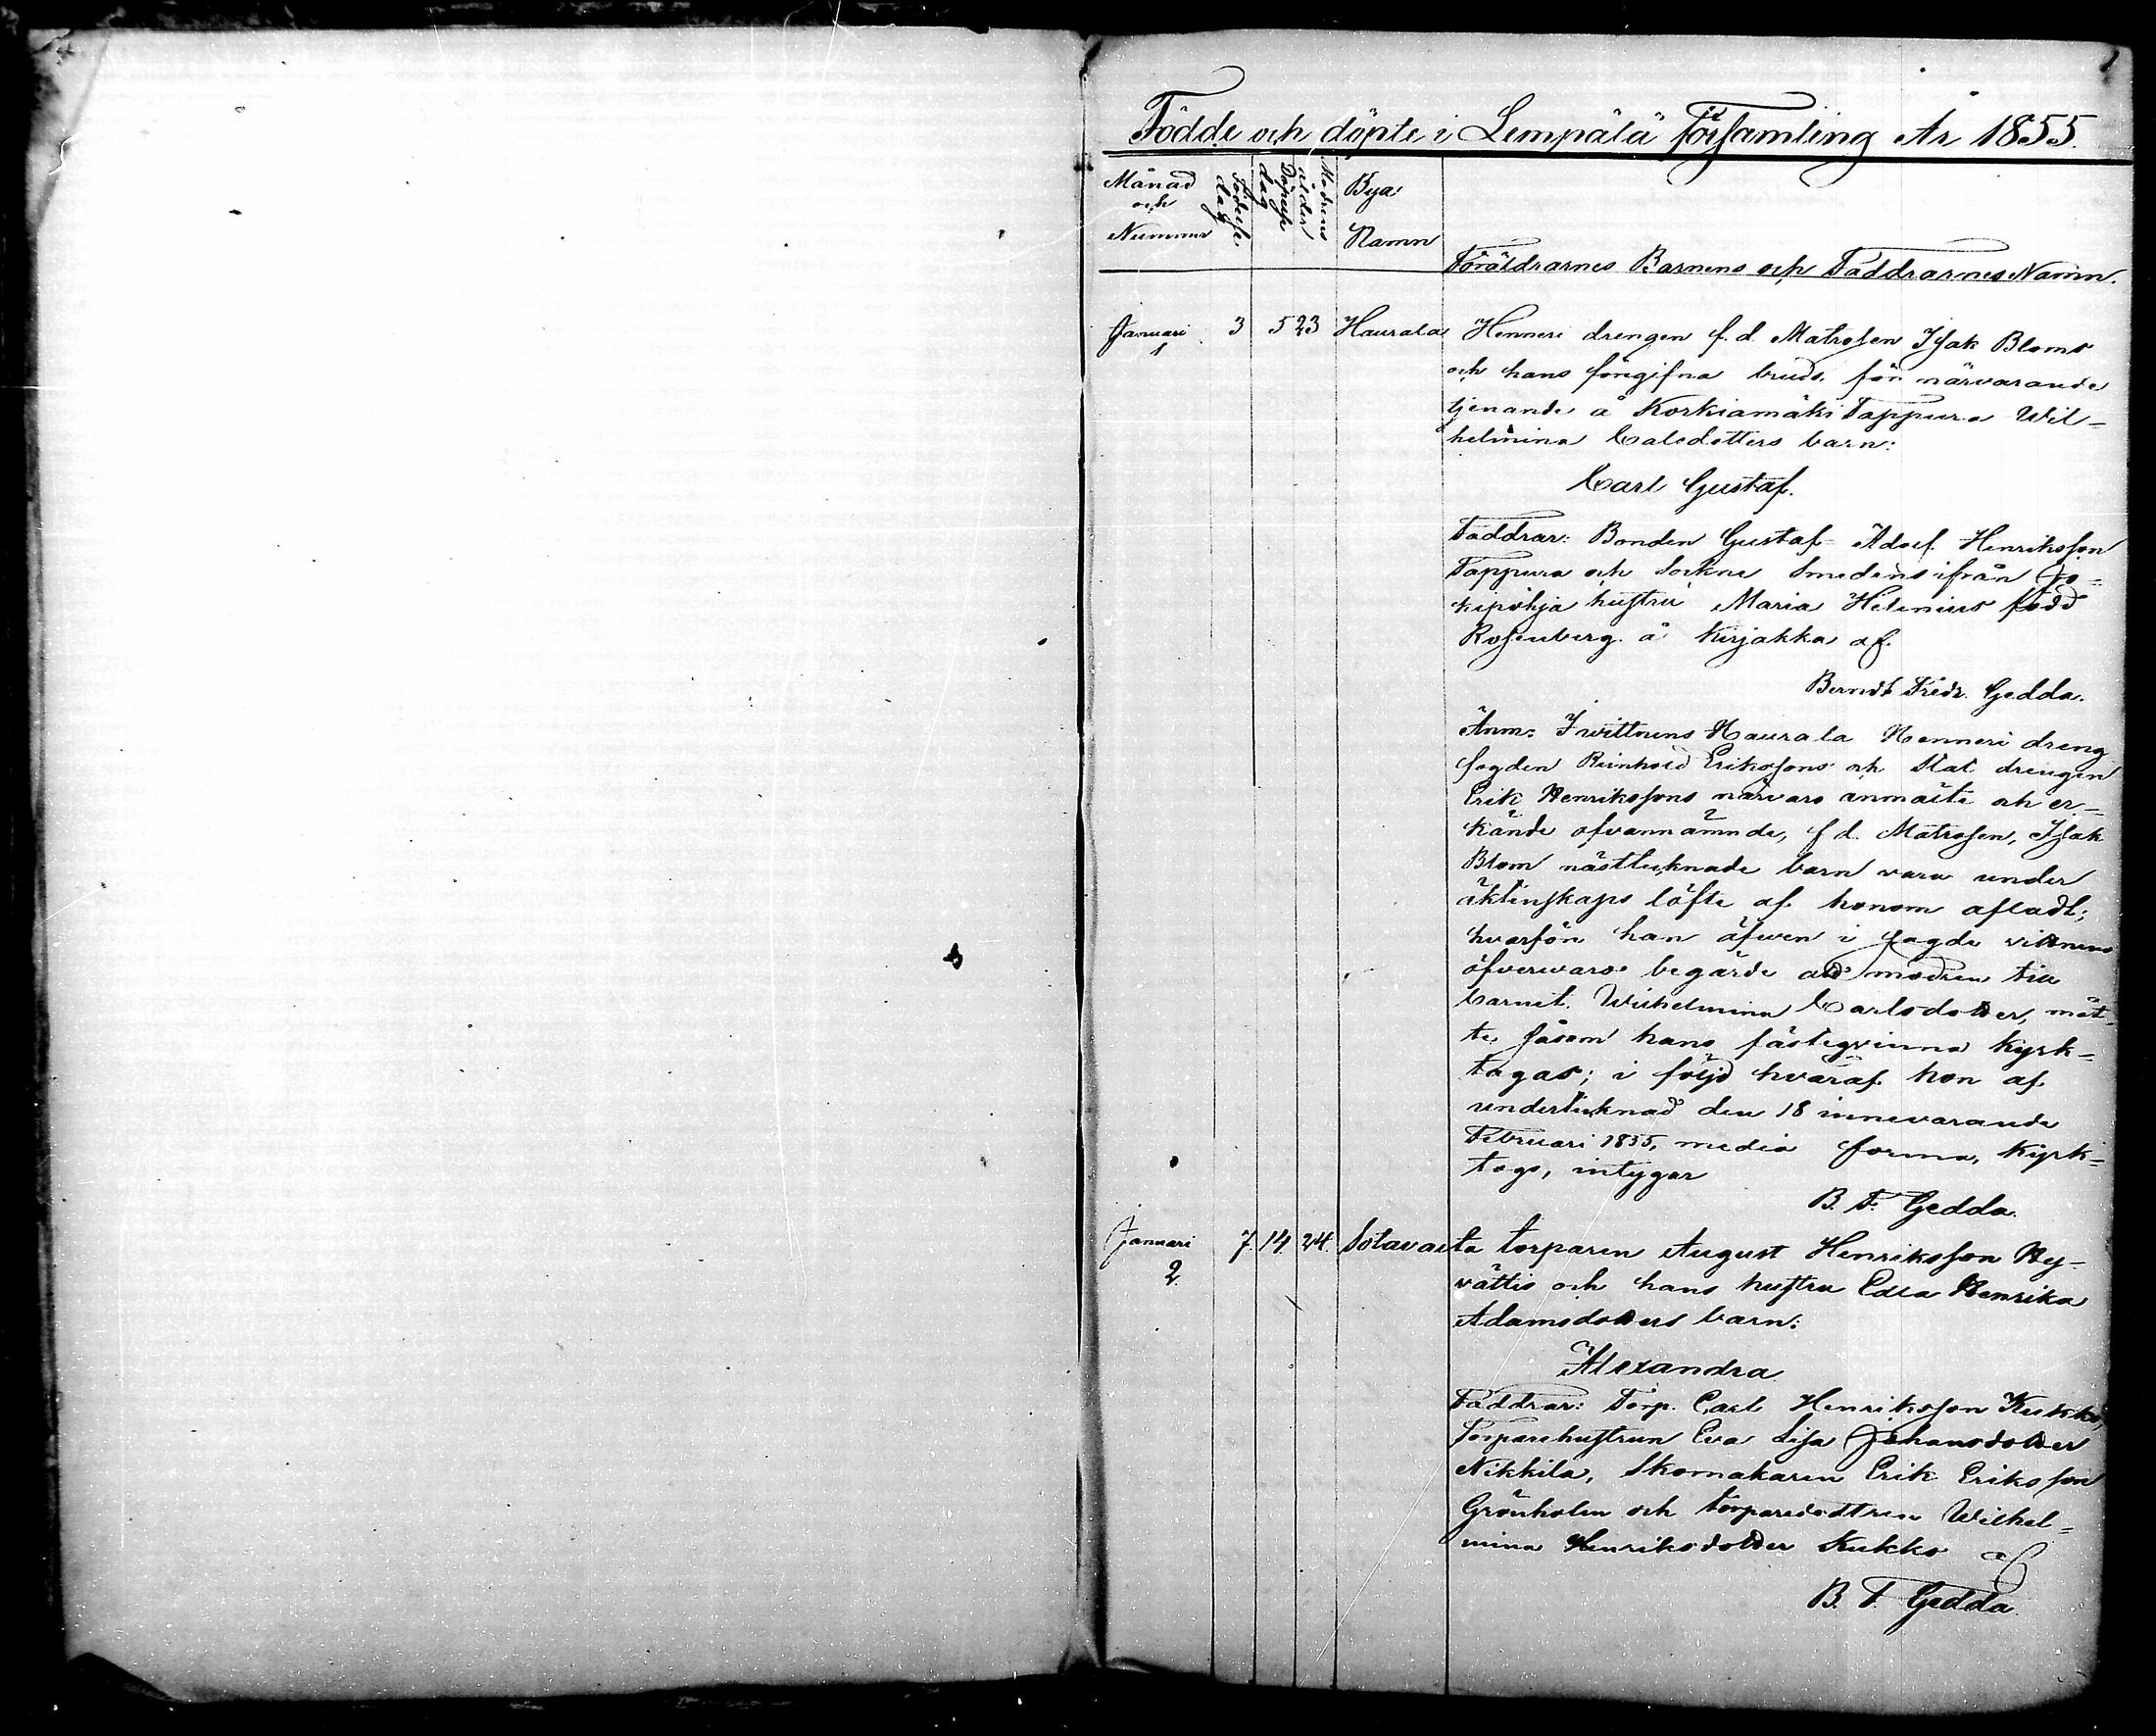 1
Födde och döpte i Lempälä församling År 1855.
Månad och Nummer
Födelse dag
Döpelse dag
Modrens ålder
Bya Namn
Föräldrarnes Barnens och Faddrarnes Namn.
Januari 1 3 5 23 Haurala Henneri drengen f.d. Matrosen Isak Bloms
och hans föregifna bruds, för närvarande
tjenande å Korkiamäki Tappura Wil-
helmina Calsdotters barn:
Carl Gustaf.
Faddrar: Bonden Gustaf Adolf Henriksson
Tappura och Sockne Smedens ifrån Jo-
kipohja hustru Maria Helenius född
Rosenberg å Kirjakka af
Berndt Fredr. Gedda.
Anm: I wittnens Haurala Henneri dreng
fogden Reinhold Erikssons och Stat drengen
Erik Henrikssons närvaro anmälte och er-
kände ofvannämnde, f d. Matrosen, Isak
Blom nästtecknade barn vara under
äktenskaps löfte af honom afladt;
hvarför han äfwen i sagde vittnens
öfverwaro begärde att modren till
barnet Wilhelmina Carlsdotter, måt-
te såsom hans fästeqvinna kyrk-
tagas; i följd hvaraf hon af
undertecknad den 18 innevarande
Februari 1855, media forma, kyrk-
togs, intygar
B. F. Gedda.
Januari 2. 7. 14 24. Sotavalta torparen August Henriksson Hy-
vättis och hans hustru Edla Henrika
Adamsdotters barn:
Alexandra
Faddrar: Torp. Carl Henriksson Kukko,
Torparehustrun Eva Lisa Johansdotter
Nikkila, Skomakaren Erik Eriksson
Grönholm och torparedottren Wilhel-
mina Henriksdotter Kukko af
B. F. Gedda